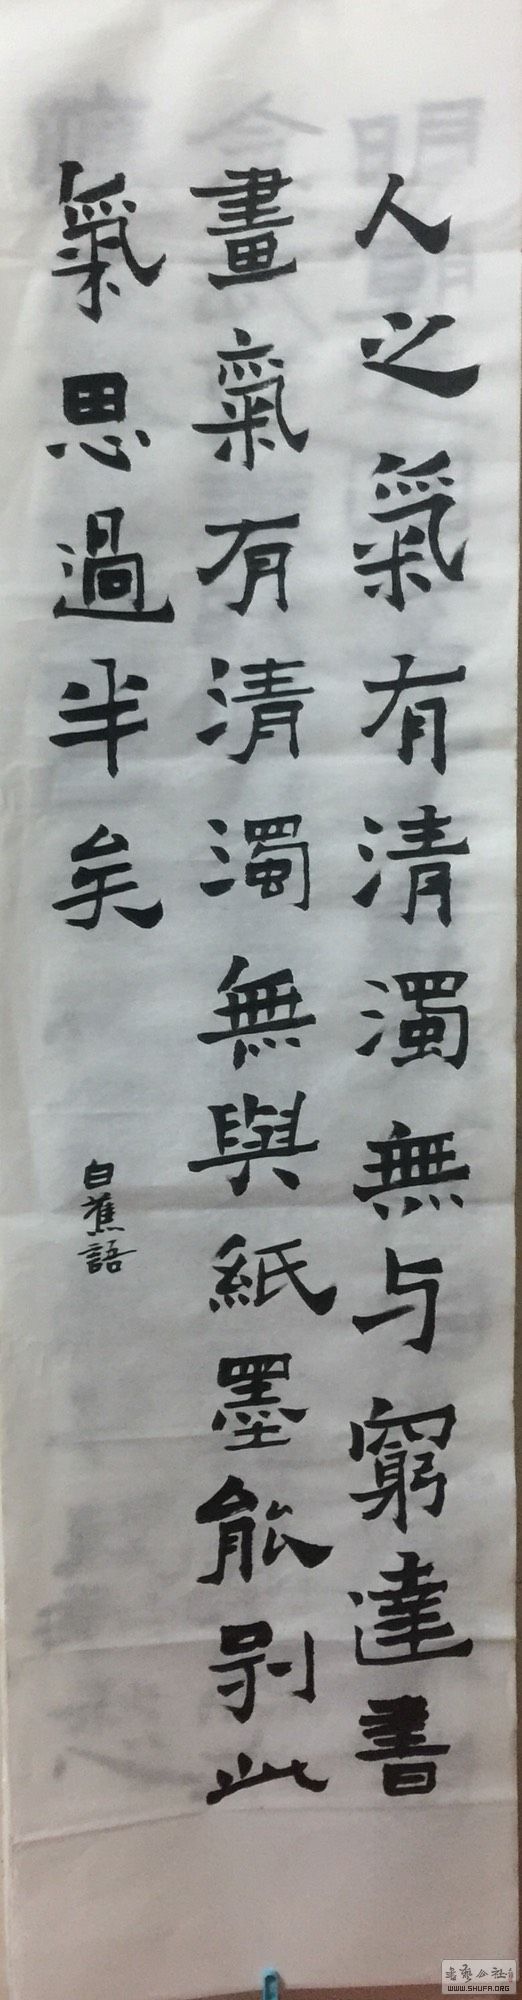 人之氣有清濁無与窮達書
畫氣有清濁無與紙墨能別此
氣思過半矣
白蕉語
書藝公社
WWW.SHUFA.ORG